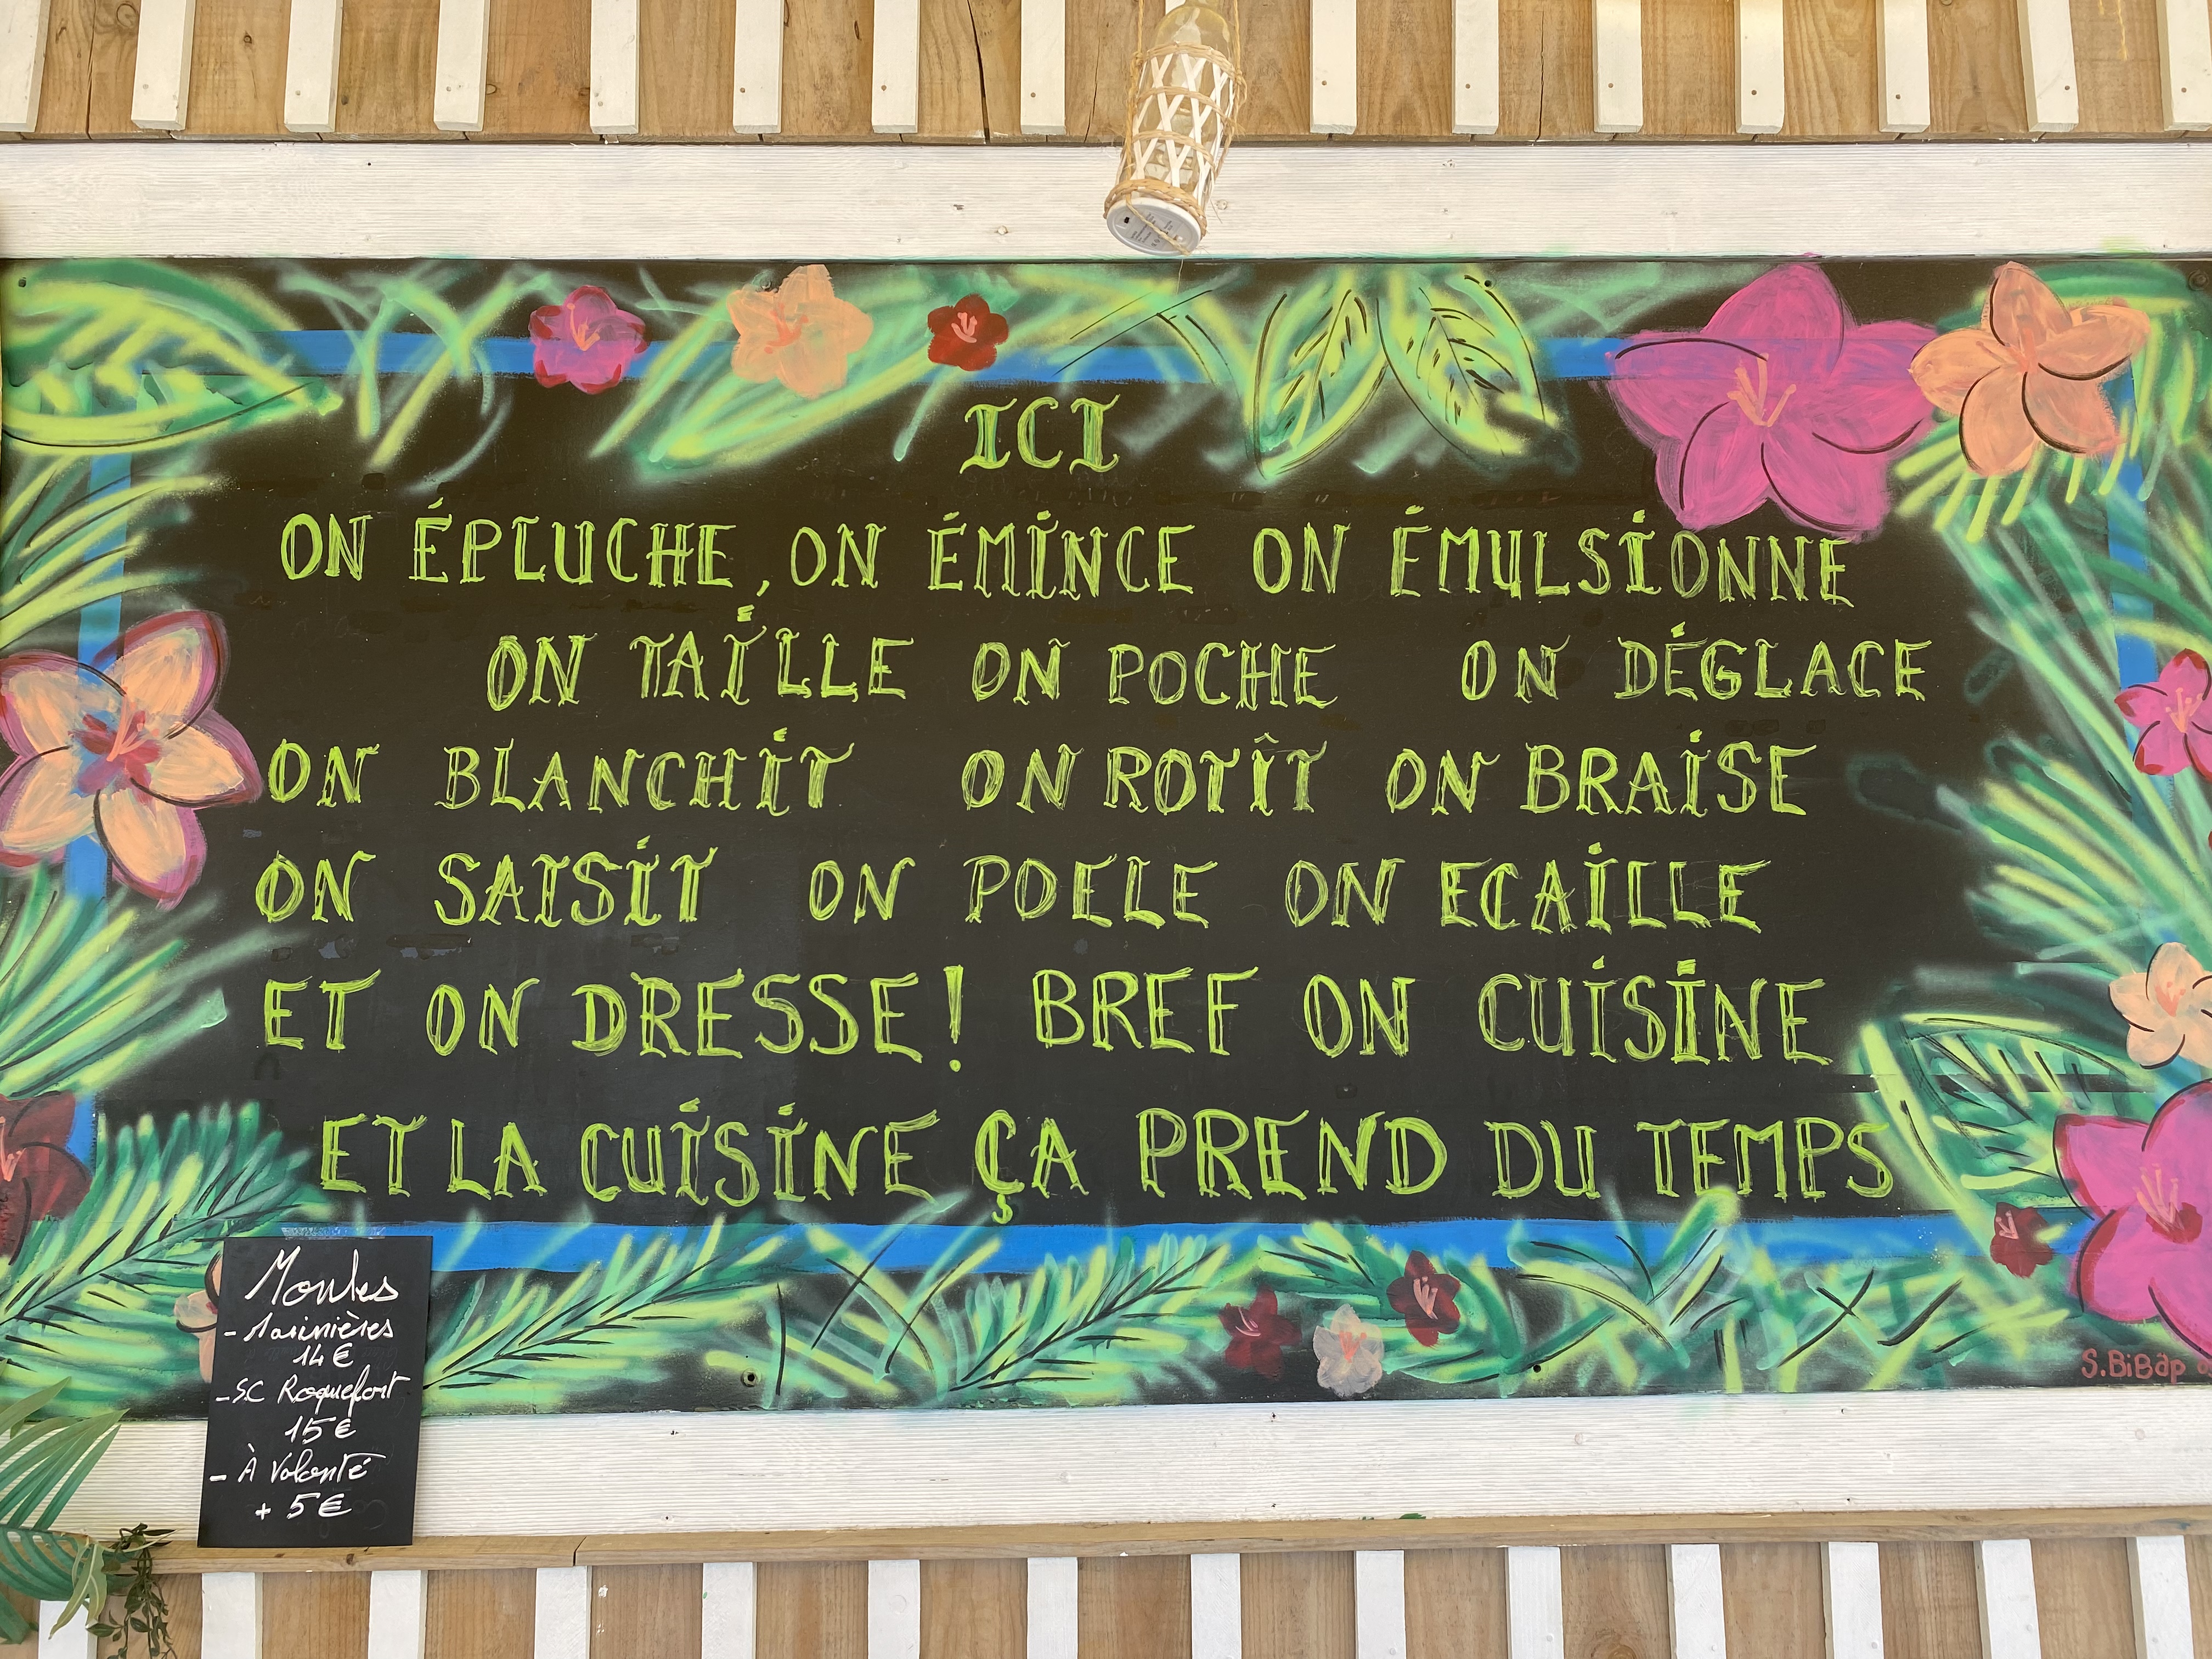 ICI
ON ÉPLUCHE, ON ÉMINCE ON ÉMULSIONNE
ON TAILLE ON POCHE ON DÉGLACE
ON BLANCHIT ON ROTÎT ON BRAISE
ON SAISIT ON POELE ON ECAILLE
ET ON DRESSE! BREF ON CUISINE
ET LA CUISINE ÇA PREND DU TEMPS
Moules
- Marinières
14€
- SC Roquefort
15€
- À Volonté
+ 5€
S.BiBap